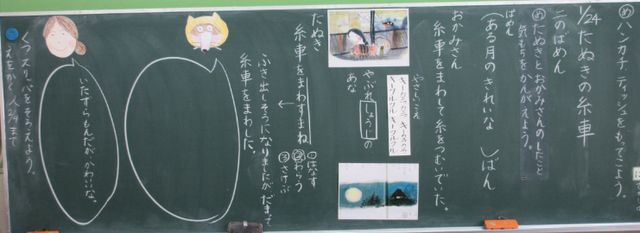 め ハンカチ ティッシュをもってこよう。
1/24 たぬきの糸車
二のばめん
め たぬきとおかみさんのしたことと
気もちをかんがえよう。
ばめん
(ある月のきれいな　)ばん
おかみさん
糸車をまわして糸をつむいでいた。
やさしいこえ
キーカラカラ キーカラカラ
キークルクル キークルクル
やぶれしょうじの
あな
たぬき
糸車をまわすまね
①はなす
②わらう
③さけぶ
ふき出しそうになりましたが、だまって
糸車をまわした。
いたずらもんだが、かわいいな。
くつスリッパをそろえよう。
えをかく人 24まで